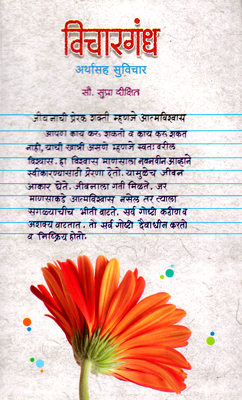 विचारगंध
अर्थासह सुविचार
सौ. सुप्रा दीक्षित
जीवनाची प्रेरक शक्ती म्हणजे आत्मविश्वास
आपण काय करू शकतो व काय करू शकत
नाही, याची खात्री असणे म्हणजे स्वतः वरील
विश्वास. हा विश्वास माणसाला नवनवीन आव्हाने
स्वीकारण्यासाठी प्रेरणा देतो. यामुळेच जीवन
आकार घेते. जीवनाला गती मिळते. जर
माणसाकडे आत्मविश्वास नसेल तर त्याला
सगळ्याचीच भीती वाटते. सर्व गोष्टी कठीण व
अशक्य वाटतात. तो सर्व गोष्टी दैवाधीन करतो
व निष्क्रिय होतो.